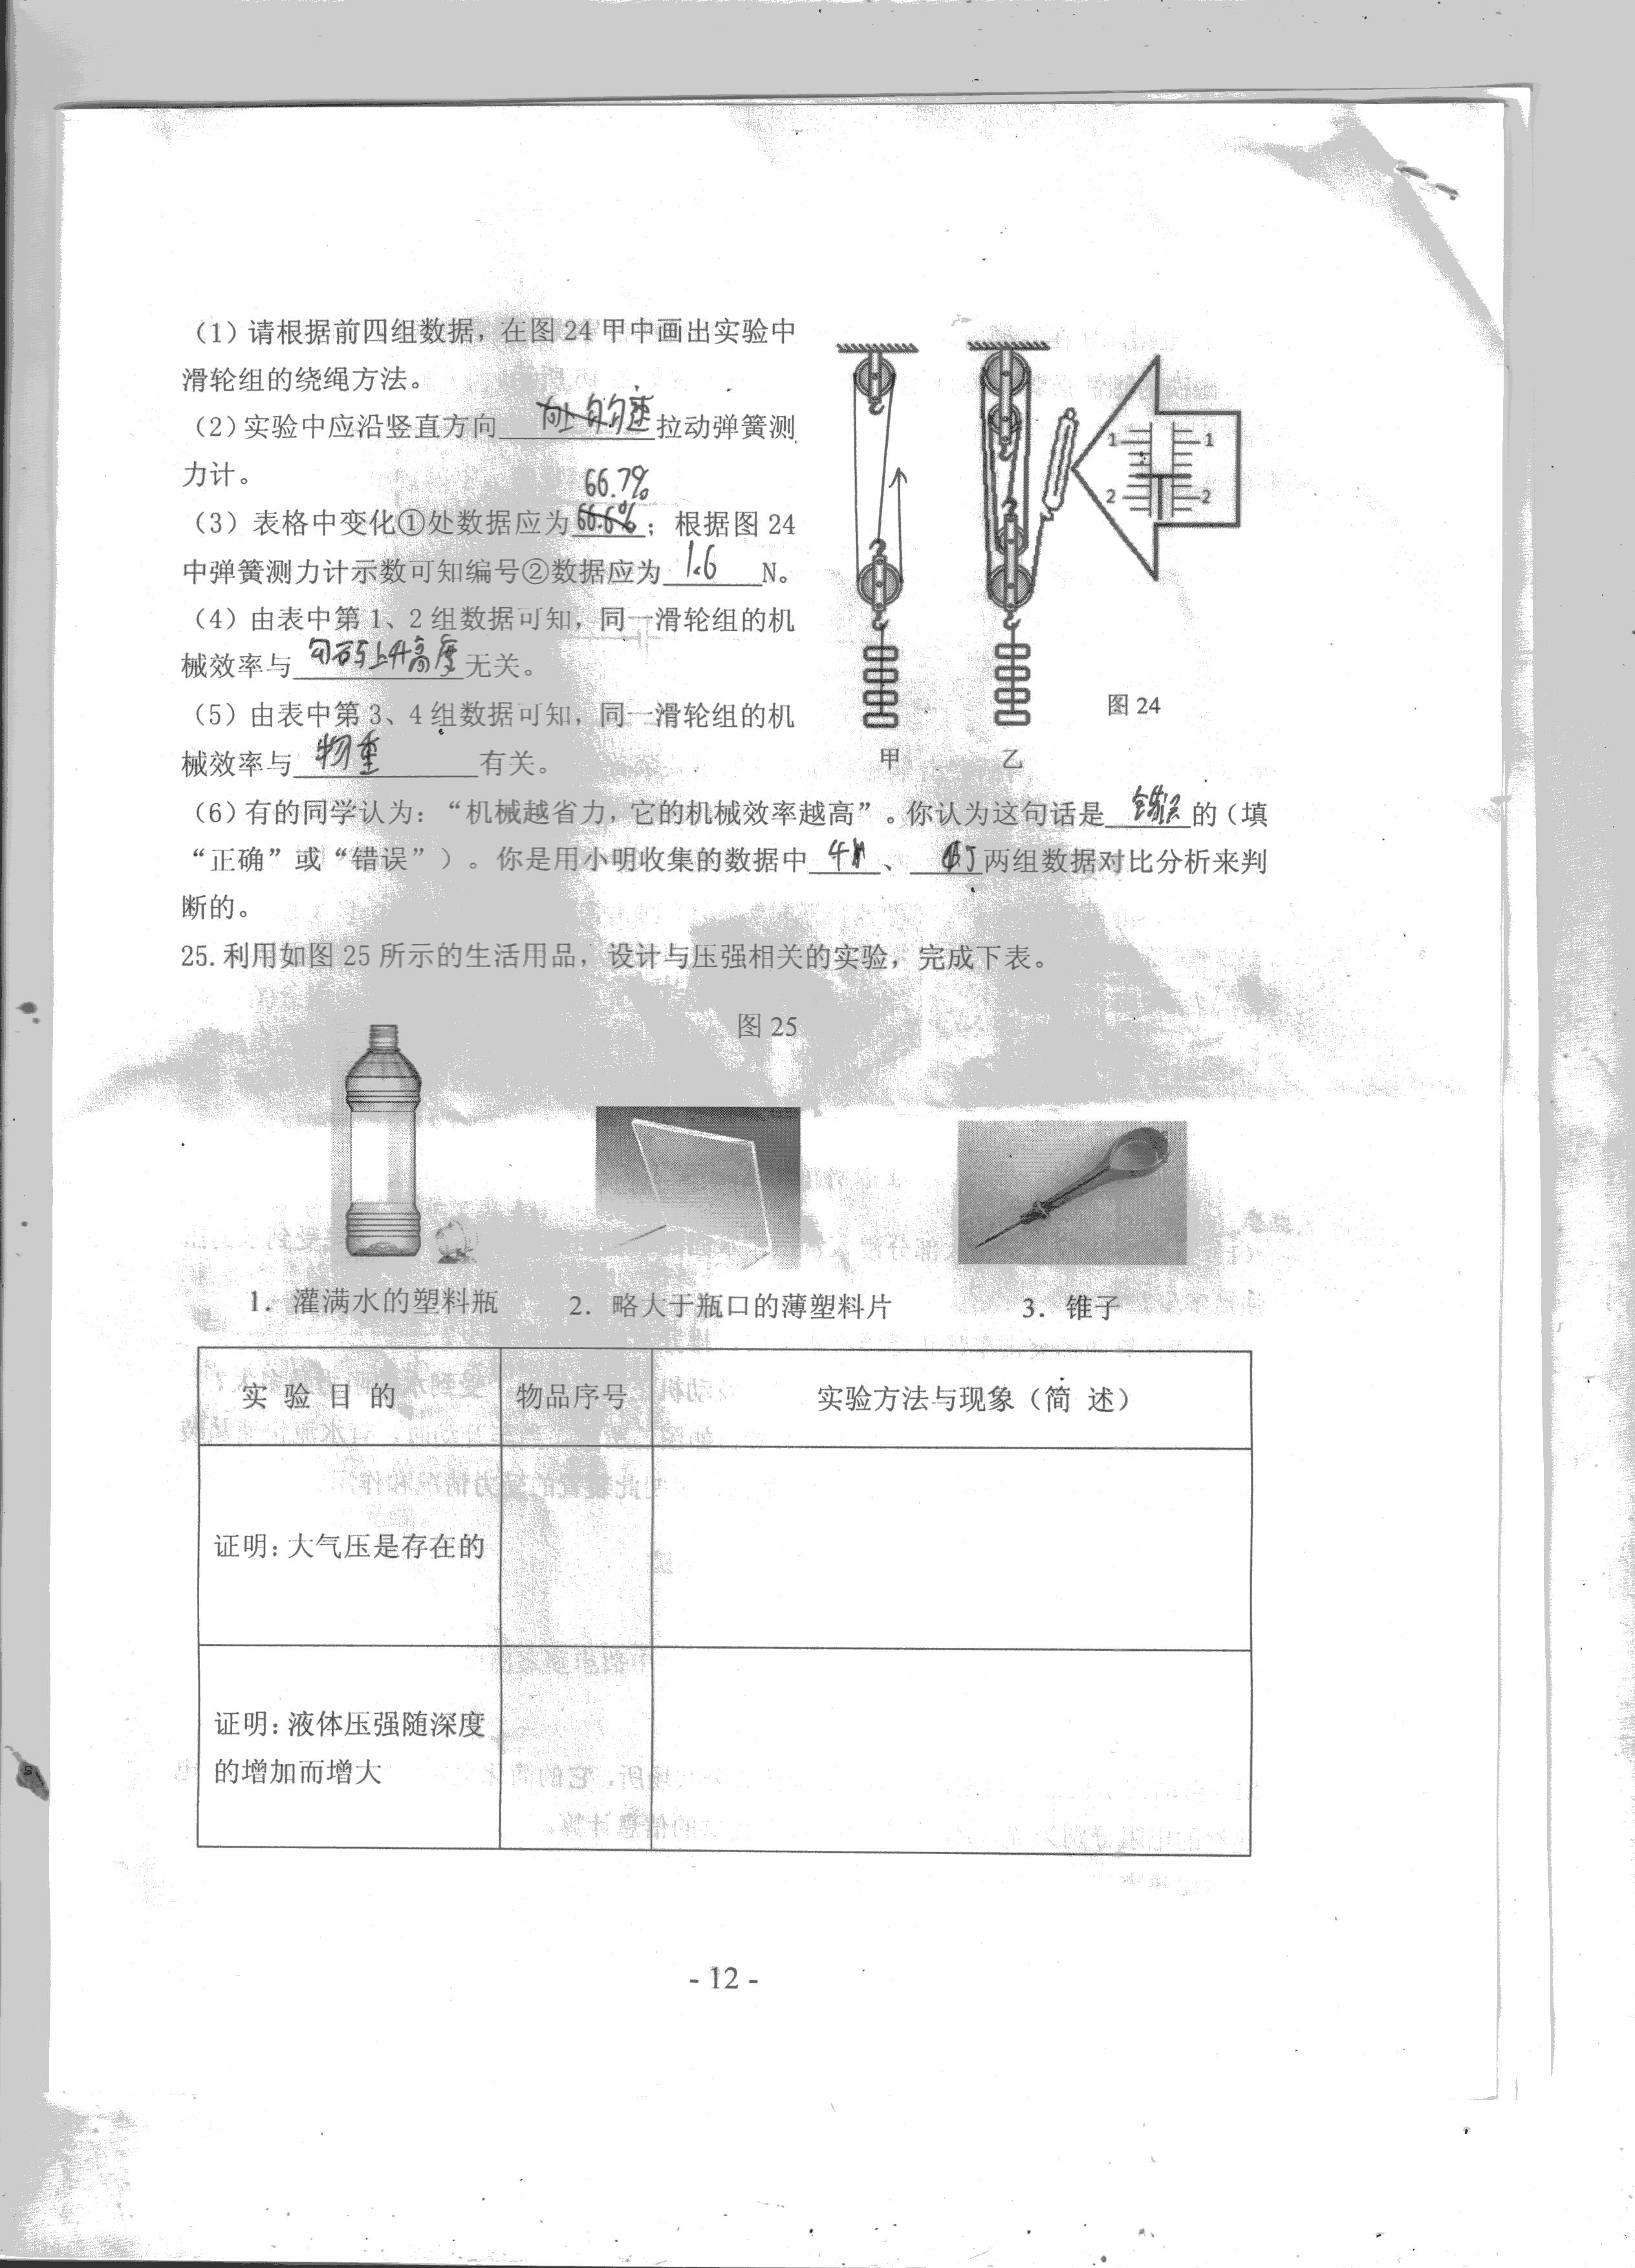 (1)请根据前四组数据，在图24甲中画出实验中
滑轮组的绕绳方法。
(2)实验中应沿竖直方向 向上匀速 拉动弹簧测
力计。
66.7%
(3)表格中变化①处数据应为66.6%；根据图24
中弹簧测力计示数可知编号②数据应为 1.6 N。
(4)由表中第1、2组数据可知，同一滑轮组的机
械效率与 钩码上升高度 无关。
(5)由表中第3、4组数据可知，同一滑轮组的机
械效率与 物重 有关。
1 1
2 2
图24
甲 乙
(6)有的同学认为：“机械越省力，它的机械效率越高”。你认为这句话是 错误 的（填
“正确”或“错误”）。你是用小明收集的数据中 4 、 5 两组数据对比分析来判
断的。
25.利用如图25所示的生活用品，设计与压强相关的实验，完成下表。
图25
1. 灌满水的塑料瓶 2. 略大于瓶口的薄塑料片 3. 锥子
实 验 目 的 物品序号 实验方法与现象（简 述）
证明：大气压是存在的
证明：液体压强随深度
的增加而增大
- 12 -